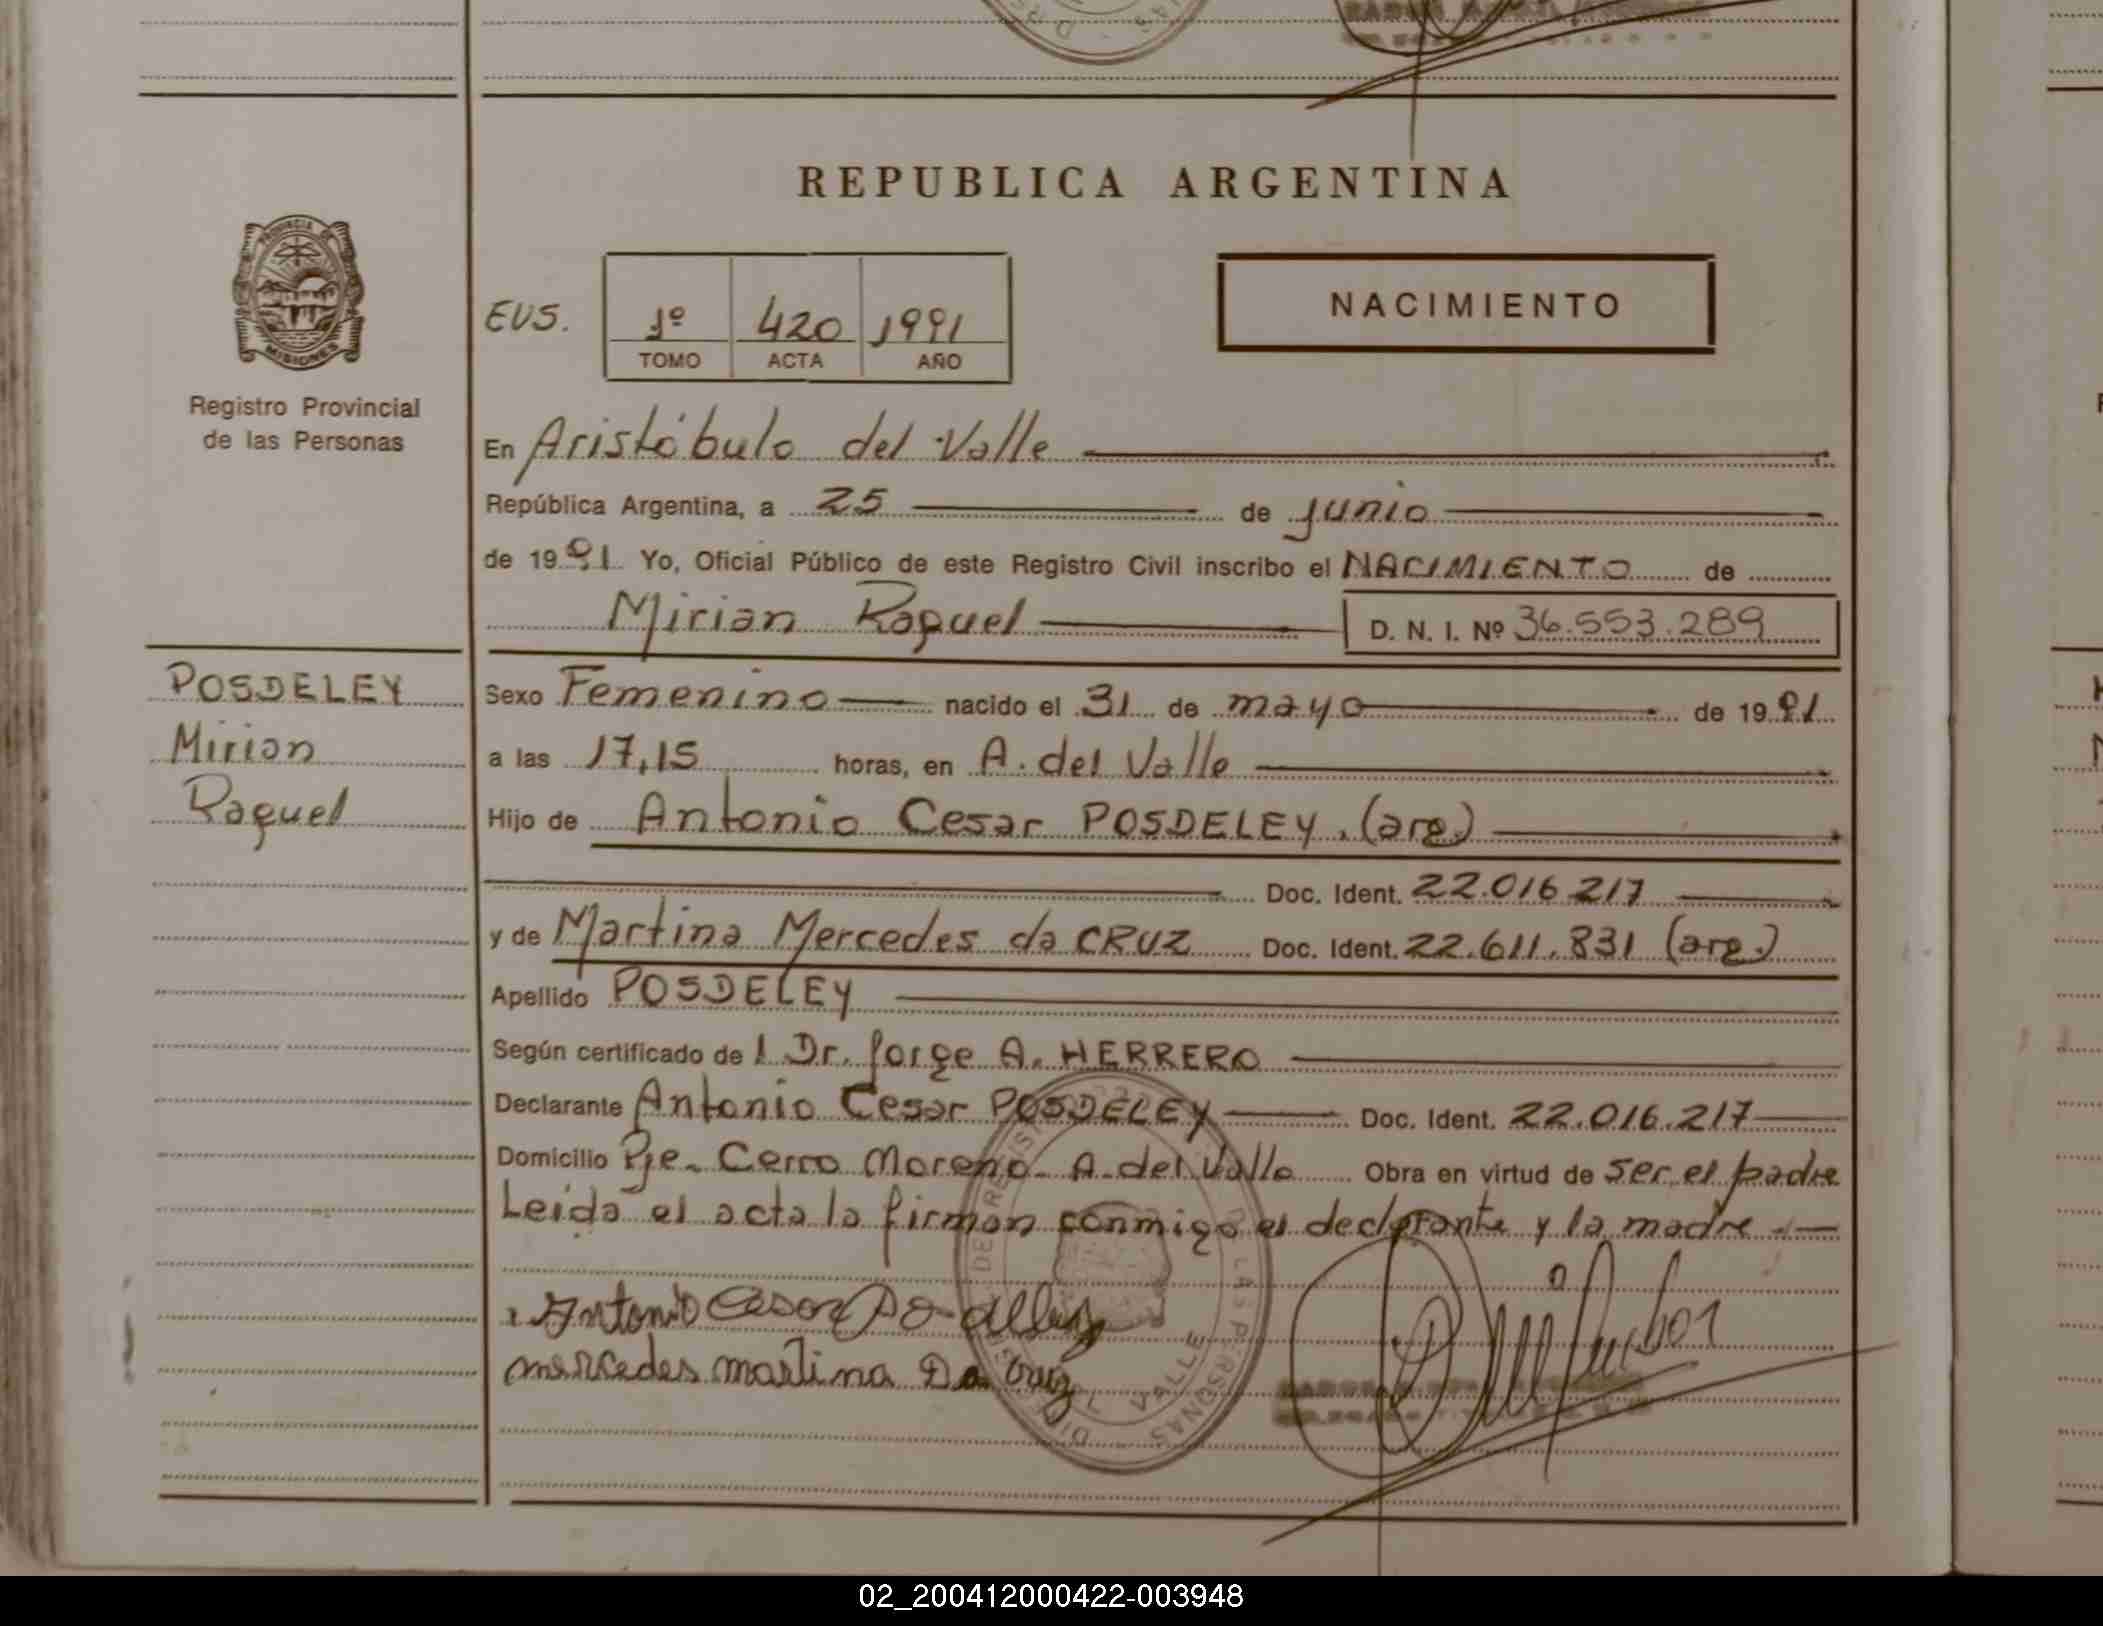 REPUBLICA ARGENTINA
PROVINCIA DE
MISIONES
Registro Provincial
de las Personas
EUS.
1º 420 1991
TOMO ACTA AÑO
NACIMIENTO
En Aristóbulo del Valle
República Argentina, a 25 de junio
de 1991 Yo, Oficial Público de este Registro Civil inscribo el NACIMIENTO de
Mirian Raquel D. N. I. Nº 36.553.289
POSDELEY
Mirian
Raquel
Sexo Femenino nacido el 31 de mayo de 1991
a las 17,15 horas, en A. del Valle
Hijo de Antonio Cesar POSDELEY. (arg.)
Doc. Ident. 22.016.217
y de Martina Mercedes da CRUZ Doc. Ident. 22.611.831 (arg.)
Apellido POSDELEY
Según certificado de l Dr. Jorge A. HERRERO
Declarante Antonio Cesar POSDELEY Doc. Ident. 22.016.217
Domicilio Pje. Cerro Moreno - A. del Valle Obra en virtud de ser el padre
Leida el acta la firman conmigo el declarante y la madre
Antonio Cesar
mercedes martina Da Cruz
DE LAS PERSONAS
VALLE
02_200412000422-003948